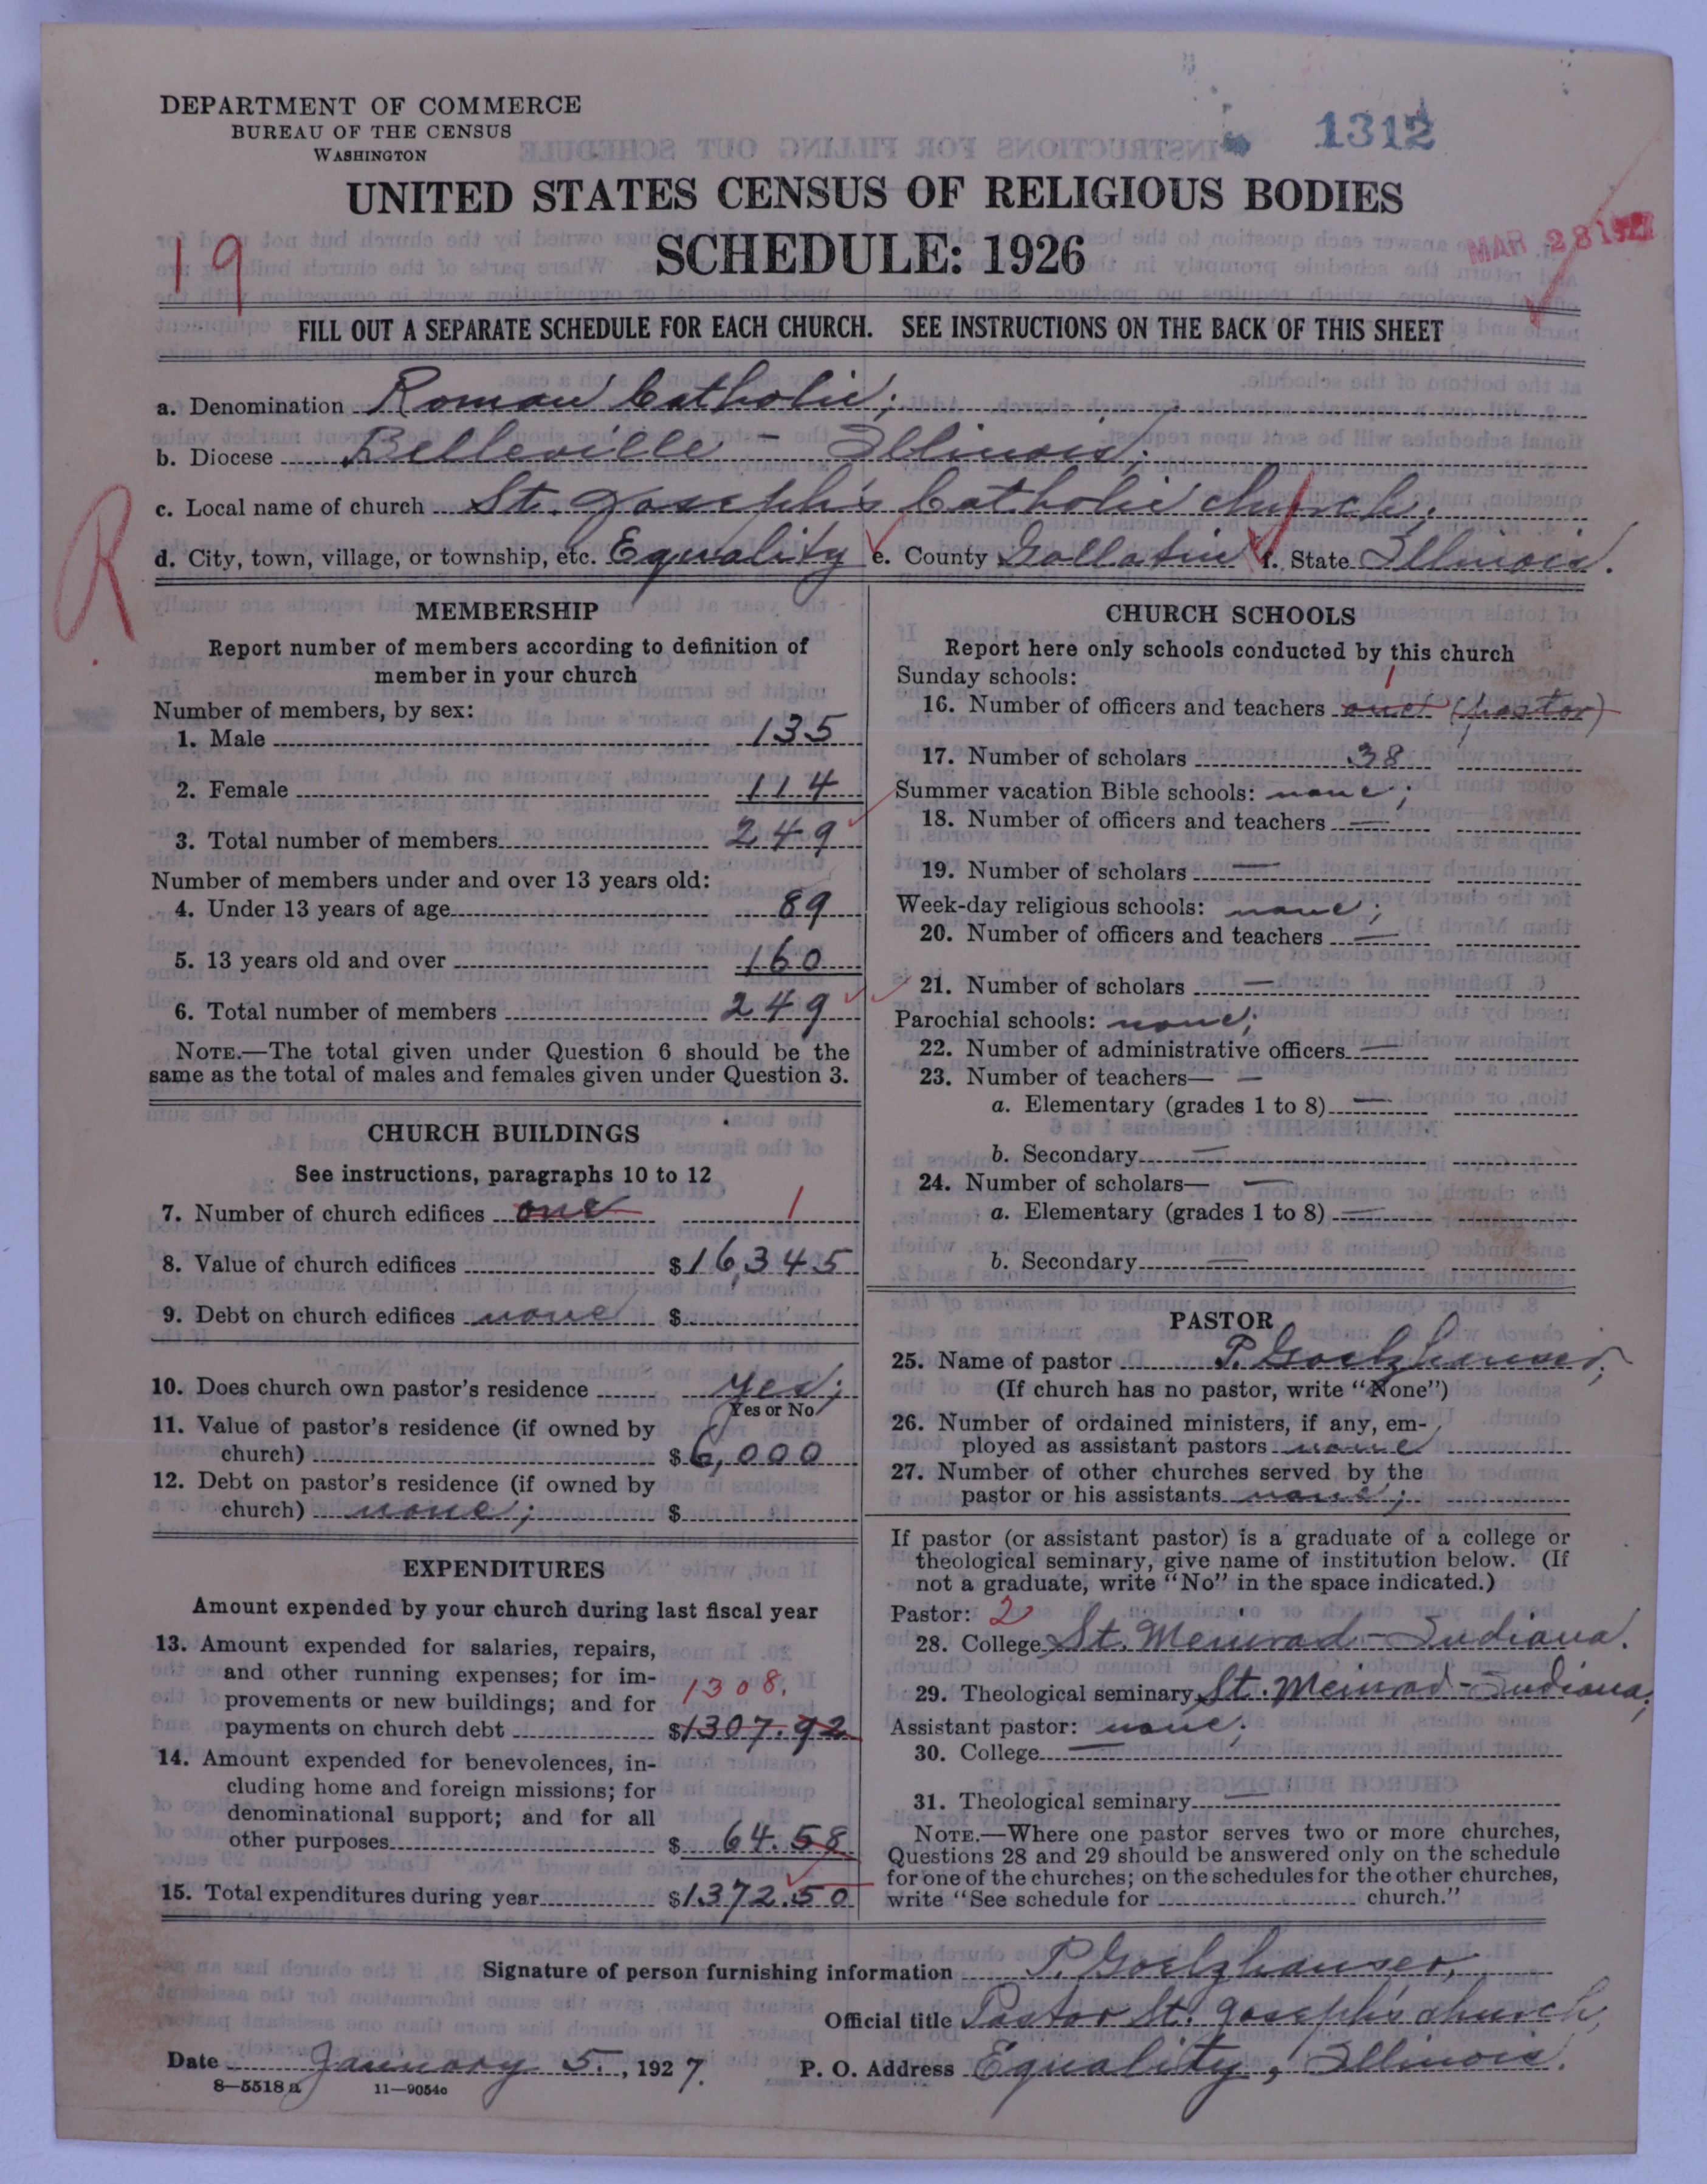 DEPARTMENT OF COMMERCE
BUREAU OF THE CENSUS
WASHINGTON
1312
UNITED STATES CENSUS OF RELIGIOUS BODIES
SCHEDULE: 1926
19
MAR 28 1927
FILL OUT A SEPARATE SCHEDULE FOR EACH CHURCH. SEE INSTRUCTIONS ON THE BACK OF THIS SHEET
a. Denomination Roman Catholic;
b. Diocese Belleville - Illinois;
c. Local name of church St. Joseph's Catholic church;
d. City, town, village, or township, etc. Equality e. County Gallatin f. State Illinois.
R
MEMBERSHIP
Report number of members according to definition of
member in your church
Number of members, by sex:
1. Male 135
2. Female 114
3. Total number of members 249
Number of members under and over 13 years old:
4. Under 13 years of age 89
5. 13 years old and over 160
6. Total number of members 249
NOTE.—The total given under Question 6 should be the
same as the total of males and females given under Question 3.
CHURCH BUILDINGS
See instructions, paragraphs 10 to 12
7. Number of church edifices one 1
8. Value of church edifices $16,345
9. Debt on church edifices none $
10. Does church own pastor's residence yes;
Yes or No
11. Value of pastor's residence (if owned by
church) $6,000
12. Debt on pastor's residence (if owned by
church) none; $
EXPENDITURES
Amount expended by your church during last fiscal year
13. Amount expended for salaries, repairs,
and other running expenses; for im-
provements or new buildings; and for 1308.
payments on church debt $1307.92
14. Amount expended for benevolences, in-
cluding home and foreign missions; for
denominational support; and for all
other purposes $ 64.58
15. Total expenditures during year $1372.50
CHURCH SCHOOLS
Report here only schools conducted by this church
Sunday schools: 1
16. Number of officers and teachers one (pastor)
17. Number of scholars 38
Summer vacation Bible schools: none;
18. Number of officers and teachers —
19. Number of scholars —
Week-day religious schools: none;
20. Number of officers and teachers —
21. Number of scholars —
Parochial schools: none;
22. Number of administrative officers —
23. Number of teachers— —
a. Elementary (grades 1 to 8) —
b. Secondary —
24. Number of scholars— —
a. Elementary (grades 1 to 8) —
b. Secondary —
PASTOR
25. Name of pastor P. Goelzhauser;
(If church has no pastor, write "None")
26. Number of ordained ministers, if any, em-
ployed as assistant pastors none
27. Number of other churches served by the
pastor or his assistants none;
If pastor (or assistant pastor) is a graduate of a college or
theological seminary, give name of institution below. (If
not a graduate, write "No" in the space indicated.)
Pastor: 2
28. College St. Meinrad - Indiana.
29. Theological seminary St. Meinrad - Indiana;
Assistant pastor: none;
30. College —
31. Theological seminary —
NOTE.—Where one pastor serves two or more churches,
Questions 28 and 29 should be answered only on the schedule
for one of the churches; on the schedules for the other churches,
write "See schedule for church."
Signature of person furnishing information P. Goelzhauser,
Official title Pastor St. Joseph's church,
Date January 5., 1927. P. O. Address Equality, Illinois.
8—5518 a 11—9054c